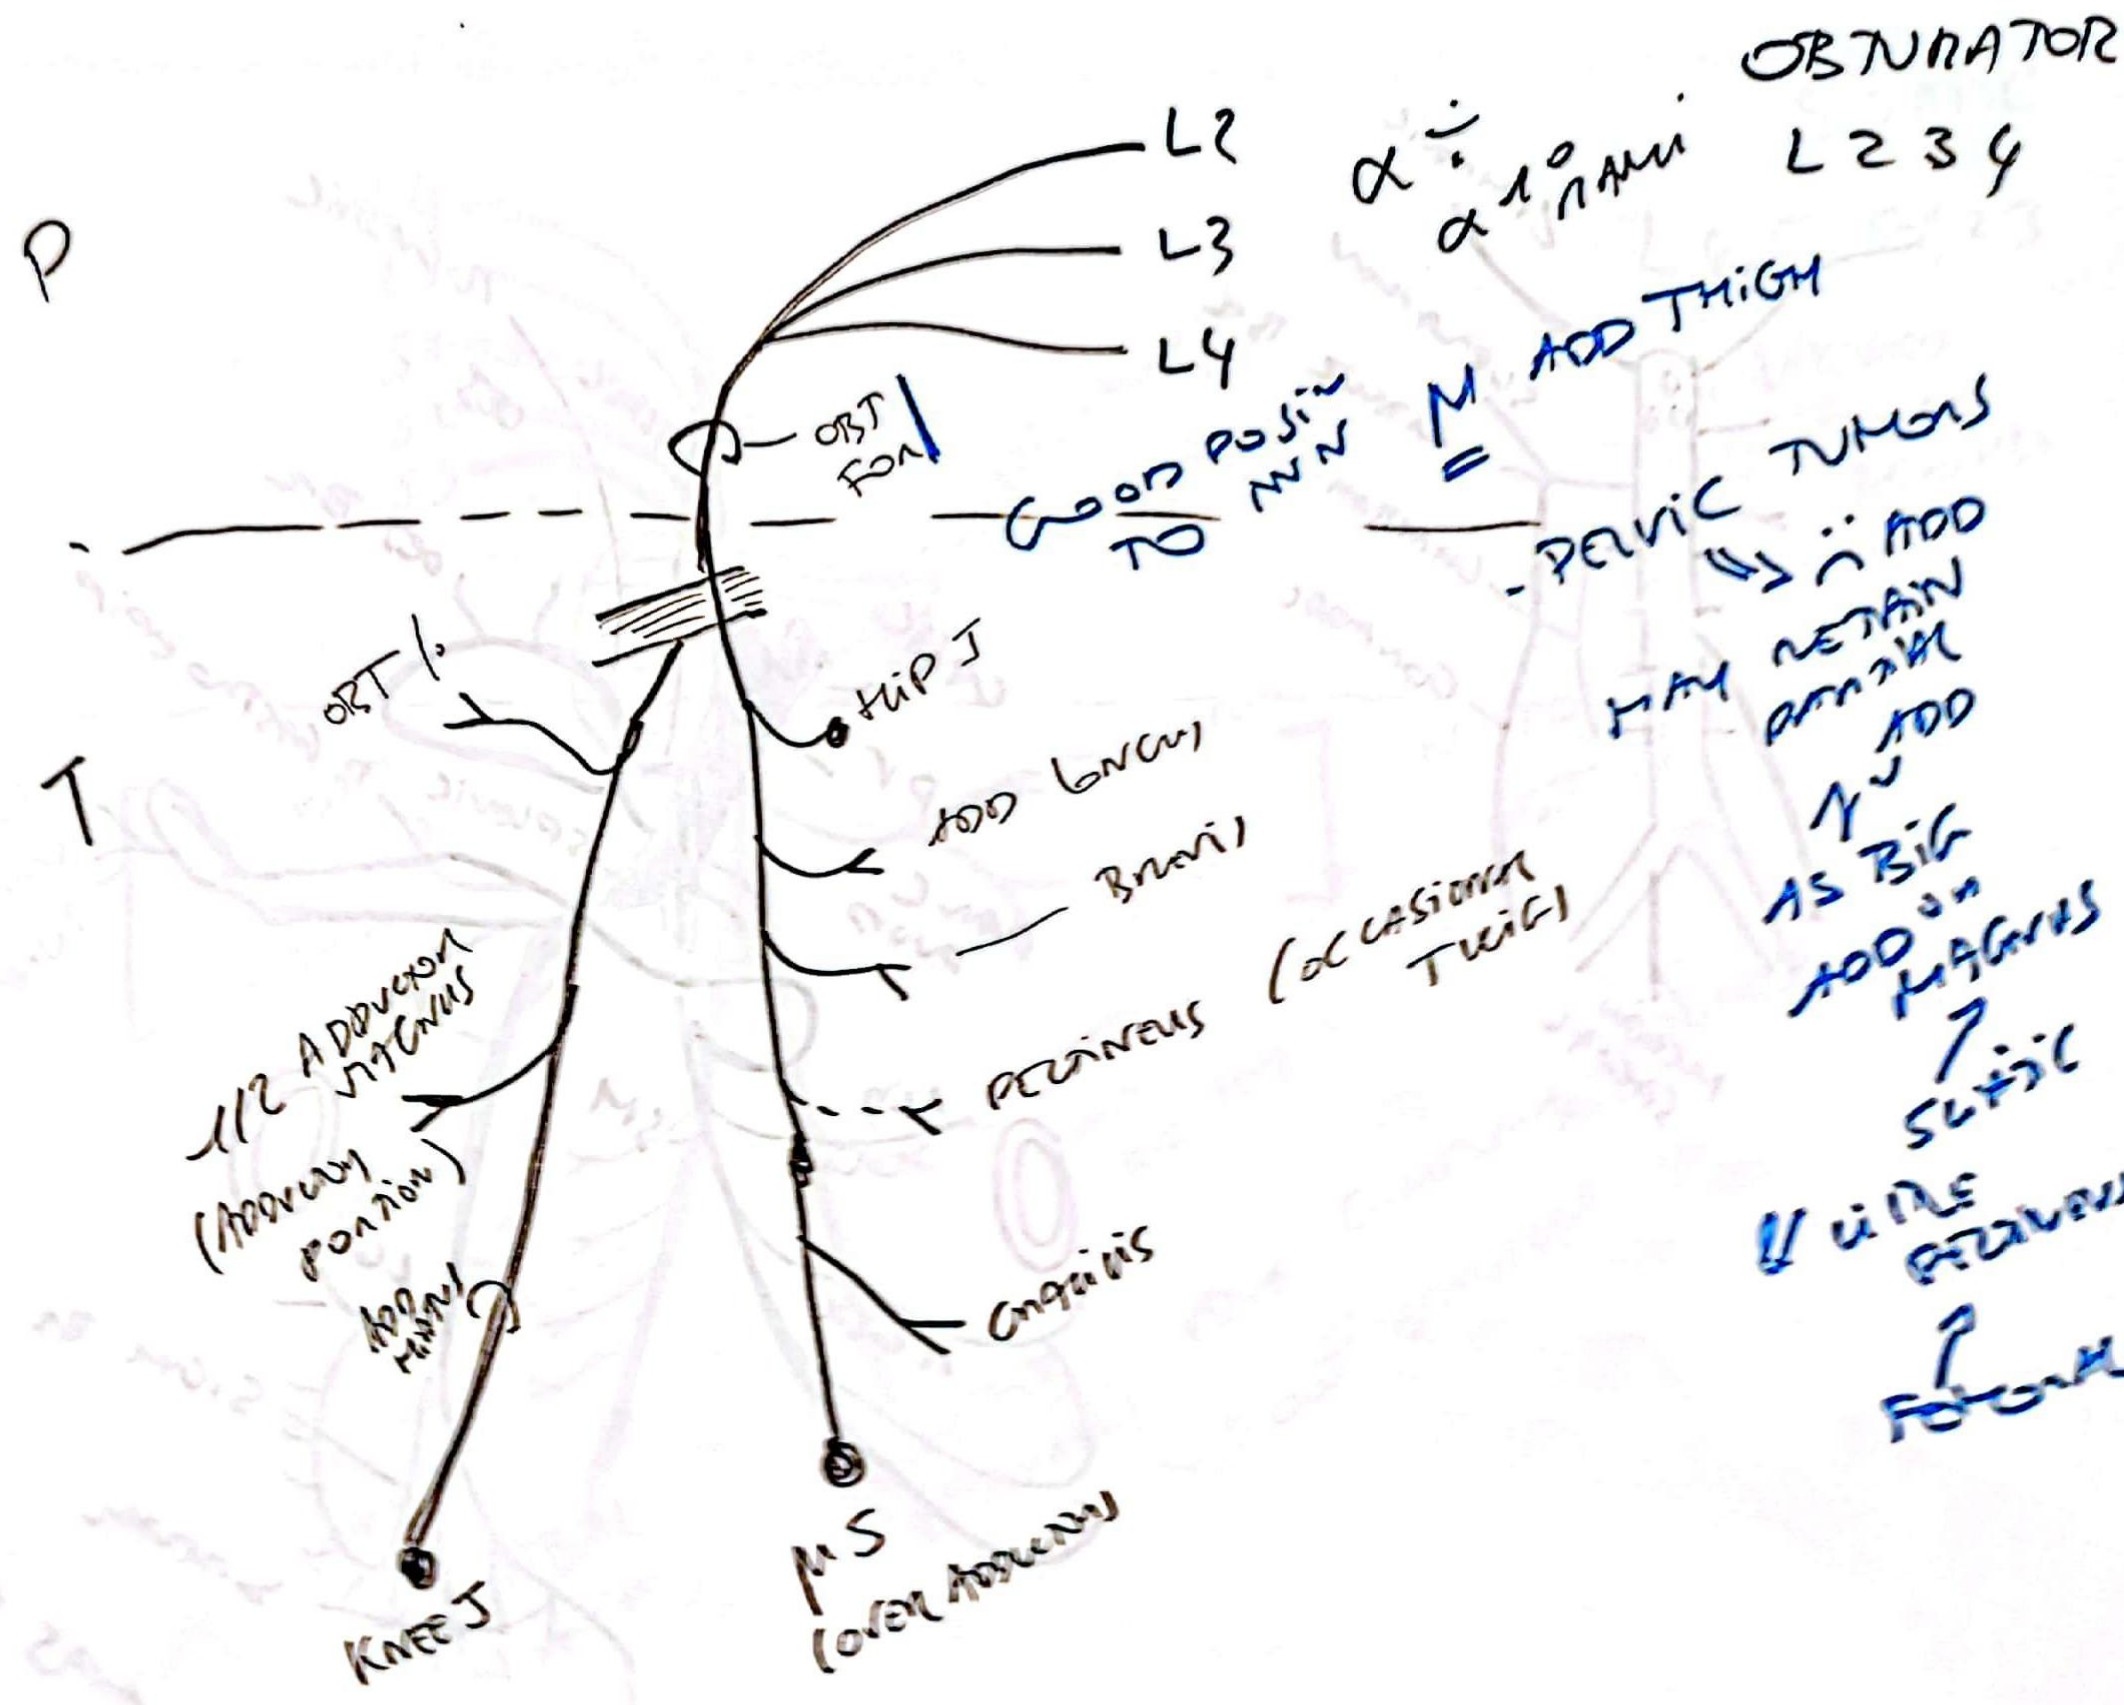 OBTURATOR
L 2 3 4
P
L2
L3
L4
α ÷
α 1° RAMI
OBT
FOR
GOOD POSIN
TO
M ADD THIGH
- PELVIC TUMORS
ADD
MAY RETAIN
PARTIAL
ADD
AS BIG
ADD
MAGNUS
SCIATIC
LITTLE
PECTINEUS
FEMORAL
T
OBT
HIP J
ADD LONGUS
BREVIS
PECTINEUS (OCCASIONAL
TWIG)
1/2 ADDUCTOR
MAGNUS
(ADDUCING
PORTION)
ADD
HIATUS
GRACILIS
KNEE J
S
(OVER ADDUCTORS